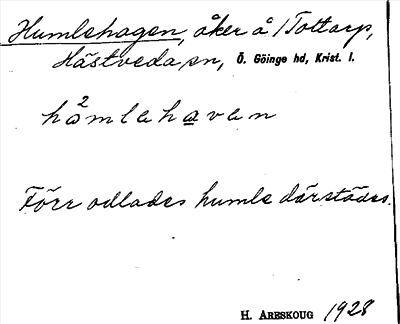 Humlehagen, åker å 1 Tottarp,
Hästveda sn, Ö. Göinge hd, Krist. l.
hå²mlahavan
Förr odlades humle därstädes.
H. Areskoug 1928